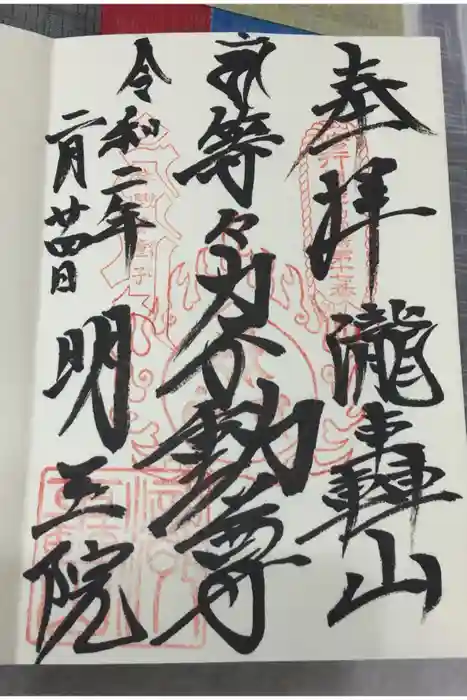 奉拝 瀧轟山
等々力不動尊
令和二年
二月廿四日
明王院